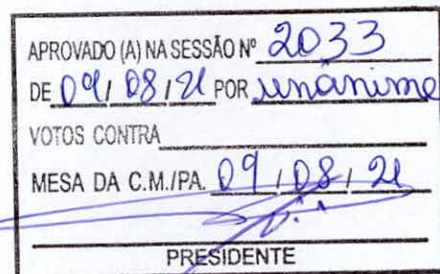 APROVADO (A) NA SESSÃO Nº 2033
DE 09/08/21 POR unânime
VOTOS CONTRA
MESA DA C.M./PA. 09/08/21
PRESIDENTE